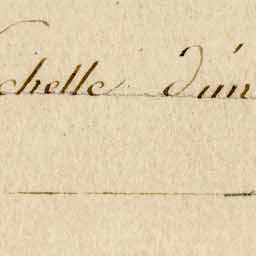 chelle d'un